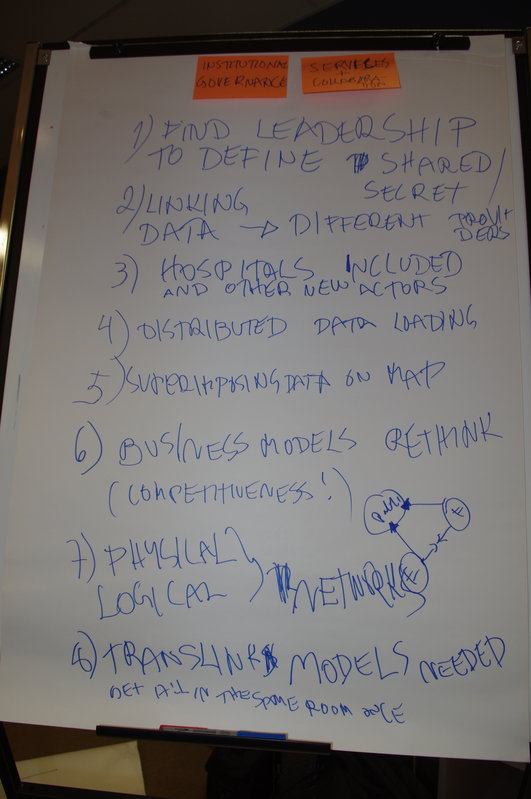 INSTITUTIONAL
GOVERNANCE
SERVICES
+
COLLABORA-
TION
1) FIND LEADERSHIP
TO DEFINE SHARED/
SECRET
2) LINKING
DATA → DIFFERENT PROVI-
DERS
3) HOSPITALS INCLUDED
AND OTHER NEW ACTORS
4) DISTRIBUTED DATA LOADING
5) SUPERIMPOSING DATA ON MAP
6) BUSINESS MODELS RETHINK
(COMPETITIVENESS!)
7) PHYSICAL
LOGICAL } NETWORKS
8) TRANSLINK MODELS NEEDED
GET ALL IN THE SAME ROOM ONCE